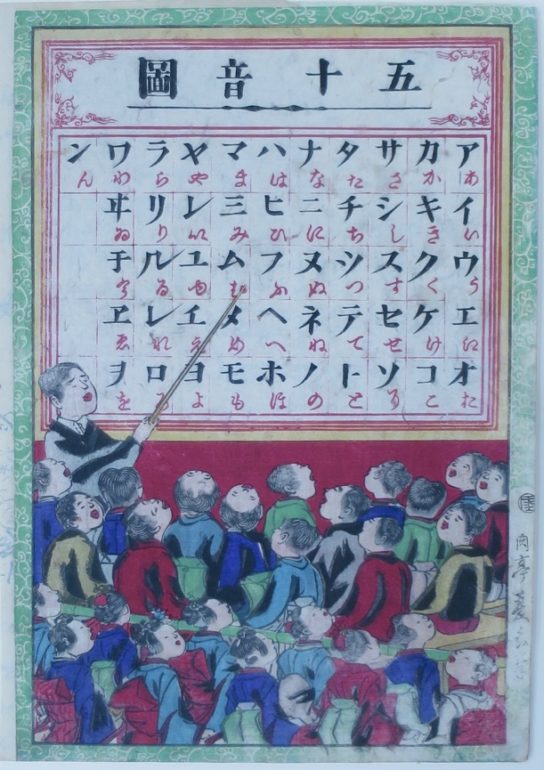 五十音圖
アあイいウうエオお
カかキきクくケけコこ
サさシしスすセせソそ
タたチちツつテてトと
ナなニにヌぬネねノの
ハはヒひフふヘへホほ
マまミみムむメめモも
ヤやレ以ユゆエえヨよ
ラらリりルるレれロろ
ワわヰゐ于ヱゑヲを
ンん
肉亭夏